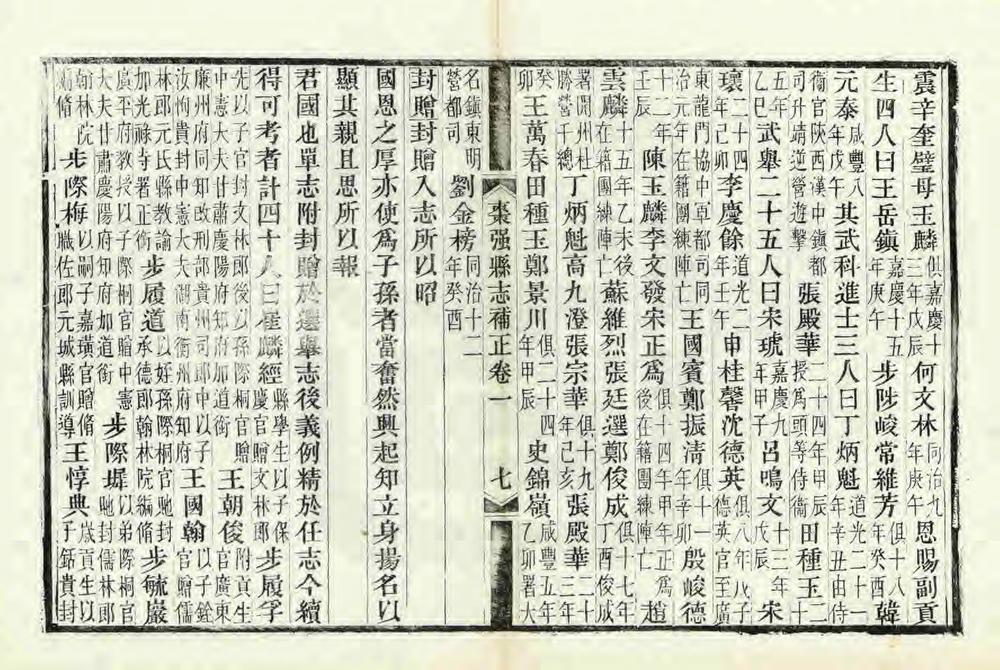 震辛奎璧母玉麟俱嘉慶十三年戊辰何文林同治九年庚午恩賜副貢
生四人曰王岳鎮嘉慶十五年庚午步陟峻常維芳俱十八年癸酉韓
元泰咸豐八年戊午其武科進士三人曰丁炳魁道光二十一年辛丑由侍
衞官陝西漢中鎮都司升靖逆營遊擊張殿華二十四年甲辰授爲頭等侍衞田種玉二十
五年乙巳武舉二十五人曰宋琥嘉慶九年甲子呂鳴文十三年戊辰宋
瓌二十四年己卯李慶餘道光二年壬午申桂馨沈德英俱八年戊子德英官至廣
東龍門協中軍都司同治元年在籍團練陣亡王國賓鄭振清俱十一年辛卯殷峻德
十二年壬辰陳玉麟李文發宋正爲俱十四年甲午正爲後在籍團練陣亡趙
雲麟十五年乙未後在籍團練陣亡蘇維烈張廷選鄭俊成俱十七年丁酉俊成
署開州杜勝營千總丁炳魁高九澄張宗華俱十九年己亥張殿華二十三年
癸卯王萬春田種玉鄭景川俱二十四年甲辰史錦嶺咸豐五年乙卯署大
棗强縣志補正卷一 七
名鎮東明營都司劉金榜同治十二年癸酉
封贈封贈入志所以昭
國恩之厚亦使爲子孫者當奮然興起知立身揚名以
顯其親且思所以報
君國也單志附封贈於選舉志後義例精於任志今續
得可考者計四十人曰崔麟經縣學生以子保慶官贈文林郎步履孚附貢生
先以子官封文林郎後以孫際桐官贈中憲大夫甘肅慶陽府知府加道銜王朝俊官廣東
廉州府同知改刑部貴州司郎中以子汝恂貴封中憲大夫湖南衡州府知府王國翰以子銓官贈儒
林郎元氏縣教諭加光祿寺署正銜步履道以好孫際桐官貤封承德郎翰林院編脩步毓巖
廣平府教授以子際桐官贈中憲大夫甘肅慶陽府知府加道銜步際墀以弟際桐官貤封儒林郎
翰林院編脩步際梅以嗣子嘉璜官贈脩職佐郎元城縣訓導王惇典歲貢生以子銛貴封